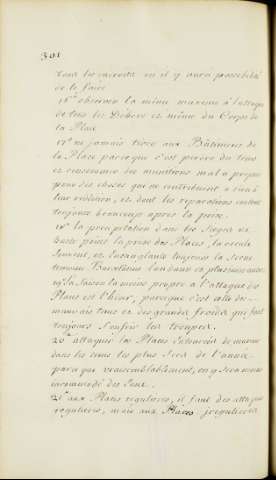 301
tous les endroits où il y aura possibilité
de le faire
16° observer la même maxime à l'attaque
de tous les Dehors et même du Corps de
la Place
17° ne jamais tirer aux Bâtimens de
la Place parce que c'est perdre du tems
et consommer des munitions mal a propos
pour des choses qui ne contribuent a rien à
leur reddition, et dont les reparations coutent
toujours beaucoup après la prise.
18° la precipitation dans les Sieges ne
hate point la prise des Places, la recule
souvent, et ensanglante toujours la Scene
temoin Barcelonne Landau et plusieurs autres
19° la Saison la moins propre a l'attaque des
Places est l'hiver, puisque c'est celle des
mauvais tems et des grands froids qui font
toujours souffrir les troupes.
20° attaquer les Places entourées de marais
dans les tems les plus secs de l'année
parce que vraisemblablement, on y sera moins
incommodé des eaux.
21° aux Places regulieres, il faut des attaques
regulieres, mais aux Places irregulieres